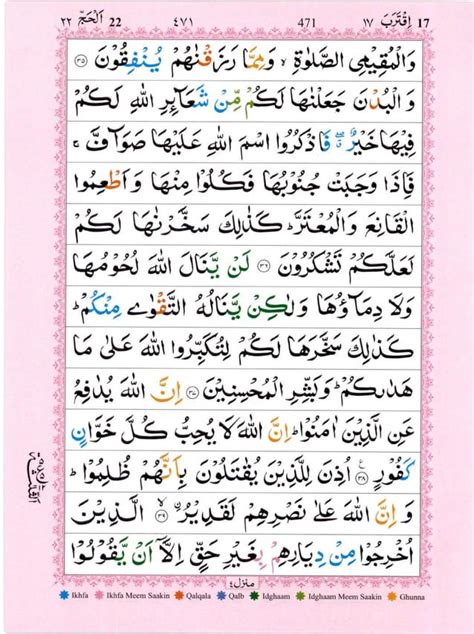 ٢٢ اَلْحَجّ 22 ٤٧١ 471 ١٧ اِقْتَرَبَ 17
وَالْمُقِيْمِى الصَّلٰوةِ ۙ وَمِمَّا رَزَقْنٰهُمْ يُنْفِقُوْنَ ۝٣٥
وَالْبُدْنَ جَعَلْنٰهَا لَكُمْ مِّنْ شَعَآئِرِ اللّٰهِ لَكُمْ
فِيْهَا خَيْرٌ ۖ ق فَاذْكُرُوا اسْمَ اللّٰهِ عَلَيْهَا صَوَآفَّ ۚ
فَاِذَا وَجَبَتْ جُنُوْبُهَا فَكُلُوْا مِنْهَا وَاَطْعِمُوا
الْقَانِعَ وَالْمُعْتَرَّ ؕ كَذٰلِكَ سَخَّرْنٰهَا لَكُمْ
لَعَلَّكُمْ تَشْكُرُوْنَ ۝٣٦ لَنْ يَّنَالَ اللّٰهَ لُحُوْمُهَا
وَلَا دِمَآؤُهَا وَلٰكِنْ يَّنَالُهُ التَّقْوٰى مِنْكُمْ ؕ
كَذٰلِكَ سَخَّرَهَا لَكُمْ لِتُكَبِّرُوا اللّٰهَ عَلٰى مَا
هَدٰىكُمْ ؕ وَبَشِّرِ الْمُحْسِنِيْنَ ۝٣٧ اِنَّ اللّٰهَ يُدٰفِعُ
عَنِ الَّذِيْنَ اٰمَنُوْا ؕ اِنَّ اللّٰهَ لَا يُحِبُّ كُلَّ خَوَّانٍ
كَفُوْرٍ ۝٣٨ اُذِنَ لِلَّذِيْنَ يُقٰتَلُوْنَ بِاَنَّهُمْ ظُلِمُوْا ؕ
وَاِنَّ اللّٰهَ عَلٰى نَصْرِهِمْ لَقَدِيْرُ ۝٣٩ اۨلَّذِيْنَ
اُخْرِجُوْا مِنْ دِيَارِهِمْ بِغَيْرِ حَقٍّ اِلَّاۤ اَنْ يَّقُوْلُوْا
منزل٤
Ikhfa Ikhfa Meem Saakin Qalqala Qalb Idghaam Idghaam Meem Saakin Ghunna